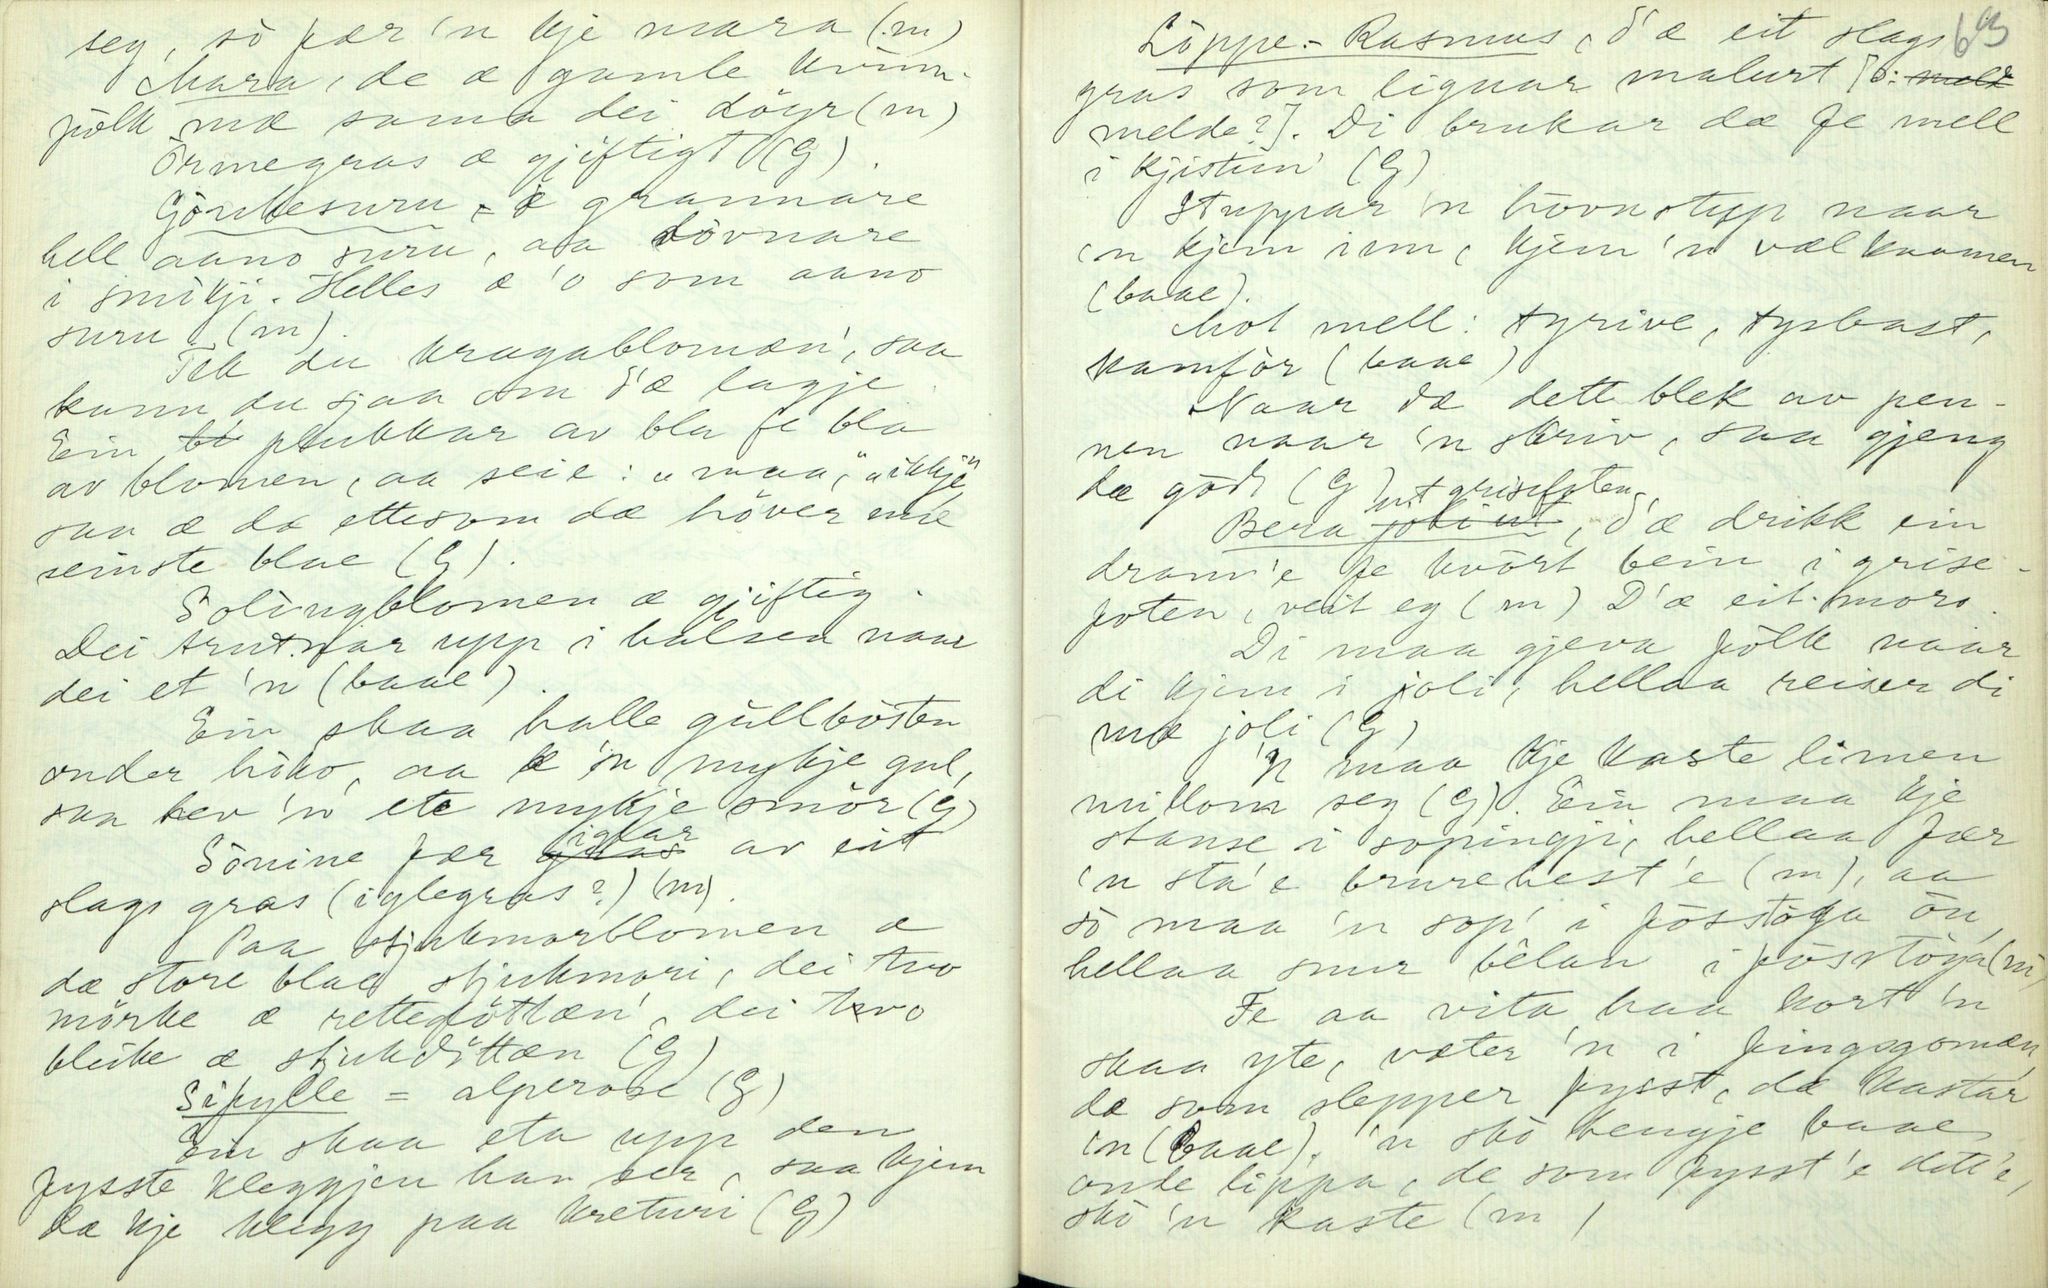 seg, sò fær 'n kje mara (m)
Mara, de æ gamle kvinn-
fólk mæ sama dei döyr (m)
Òrmegras æ gjiftigt (G).
Gjöukesuru æ grannare
hell aano suru, aa lövnare
i smikji. Helles æ 'o som aano
suru (m).
Tek du kragablomæn', saa
kann du sjaa om d'æ lagje.
Ein plukkar av bla fe bla
av blomen, aa seie: "maa", "ikkje"
saa æ dæ ettesom dæ höver mæ
seinste blae (G).
Solingblomen æ gjiftig.
Dei trutnar upp i halsen naar
dei et 'n (baae).
Ein skaa halle gullbósten
onder hòko, aa æ 'n mykje gul,
saa hev 'n ete mykje smör (G)
Sònine fær iglar av eit
slags gras (iglegras?) (m).
Paa stjukmorblomen æ
dæ store blae stjukmori, dei two
mörke æ rettedòttæn', dei two
bleike æ stjukdòttæn (G)
Sifylle = alperose (G)
Ein skaa eta upp den
fysste kleggjen han ser, saa kjem
dæ kje klegg paa kreturi (G)
63
Lòppe-Rasmus, d'æ eit slags
gras som lignar malurt [o: mold
melde?]. Di brukar dæ fe mell
i kjistun' (G)
Stuppar 'n hòvnstupp naar
'n kjem inn, kjem 'n vælkaamen
(baae).
Mot mell: tyrive, tysbast,
kamfòr (baae)
Naar dæ dett blek av pen-
nen naar 'n skriv, saa gjeng
dæ gòdt (G)
Bera joli ut ut grisefoten, d'æ drikk ein
dram'e fe kvòrt bein i grise-
foten, veit eg (m) D'æ eit moro.
Di maa gjeva fòlk naar
di kjem i joli, hellaa reiser di
mæ joli (G)
'N maa kje kaste limen
millom seg (G). Ein maa kje
stanse i sopingji, hellaa fær
'n sta'e brurehest'e (m), aa
sò maa 'n sop' i fòsstòga òn,
hellaa snur bêlan i fòsstòga (m)
Fe aa vita haa kort 'n
skaa yte, væter 'n i fingsgomæn,
dæ som slepper fysst, dæ kastar
'n (baae). 'n skò hengje baae
onde lippa, de som fysst'e dett'e,
skò 'n kaste (m)